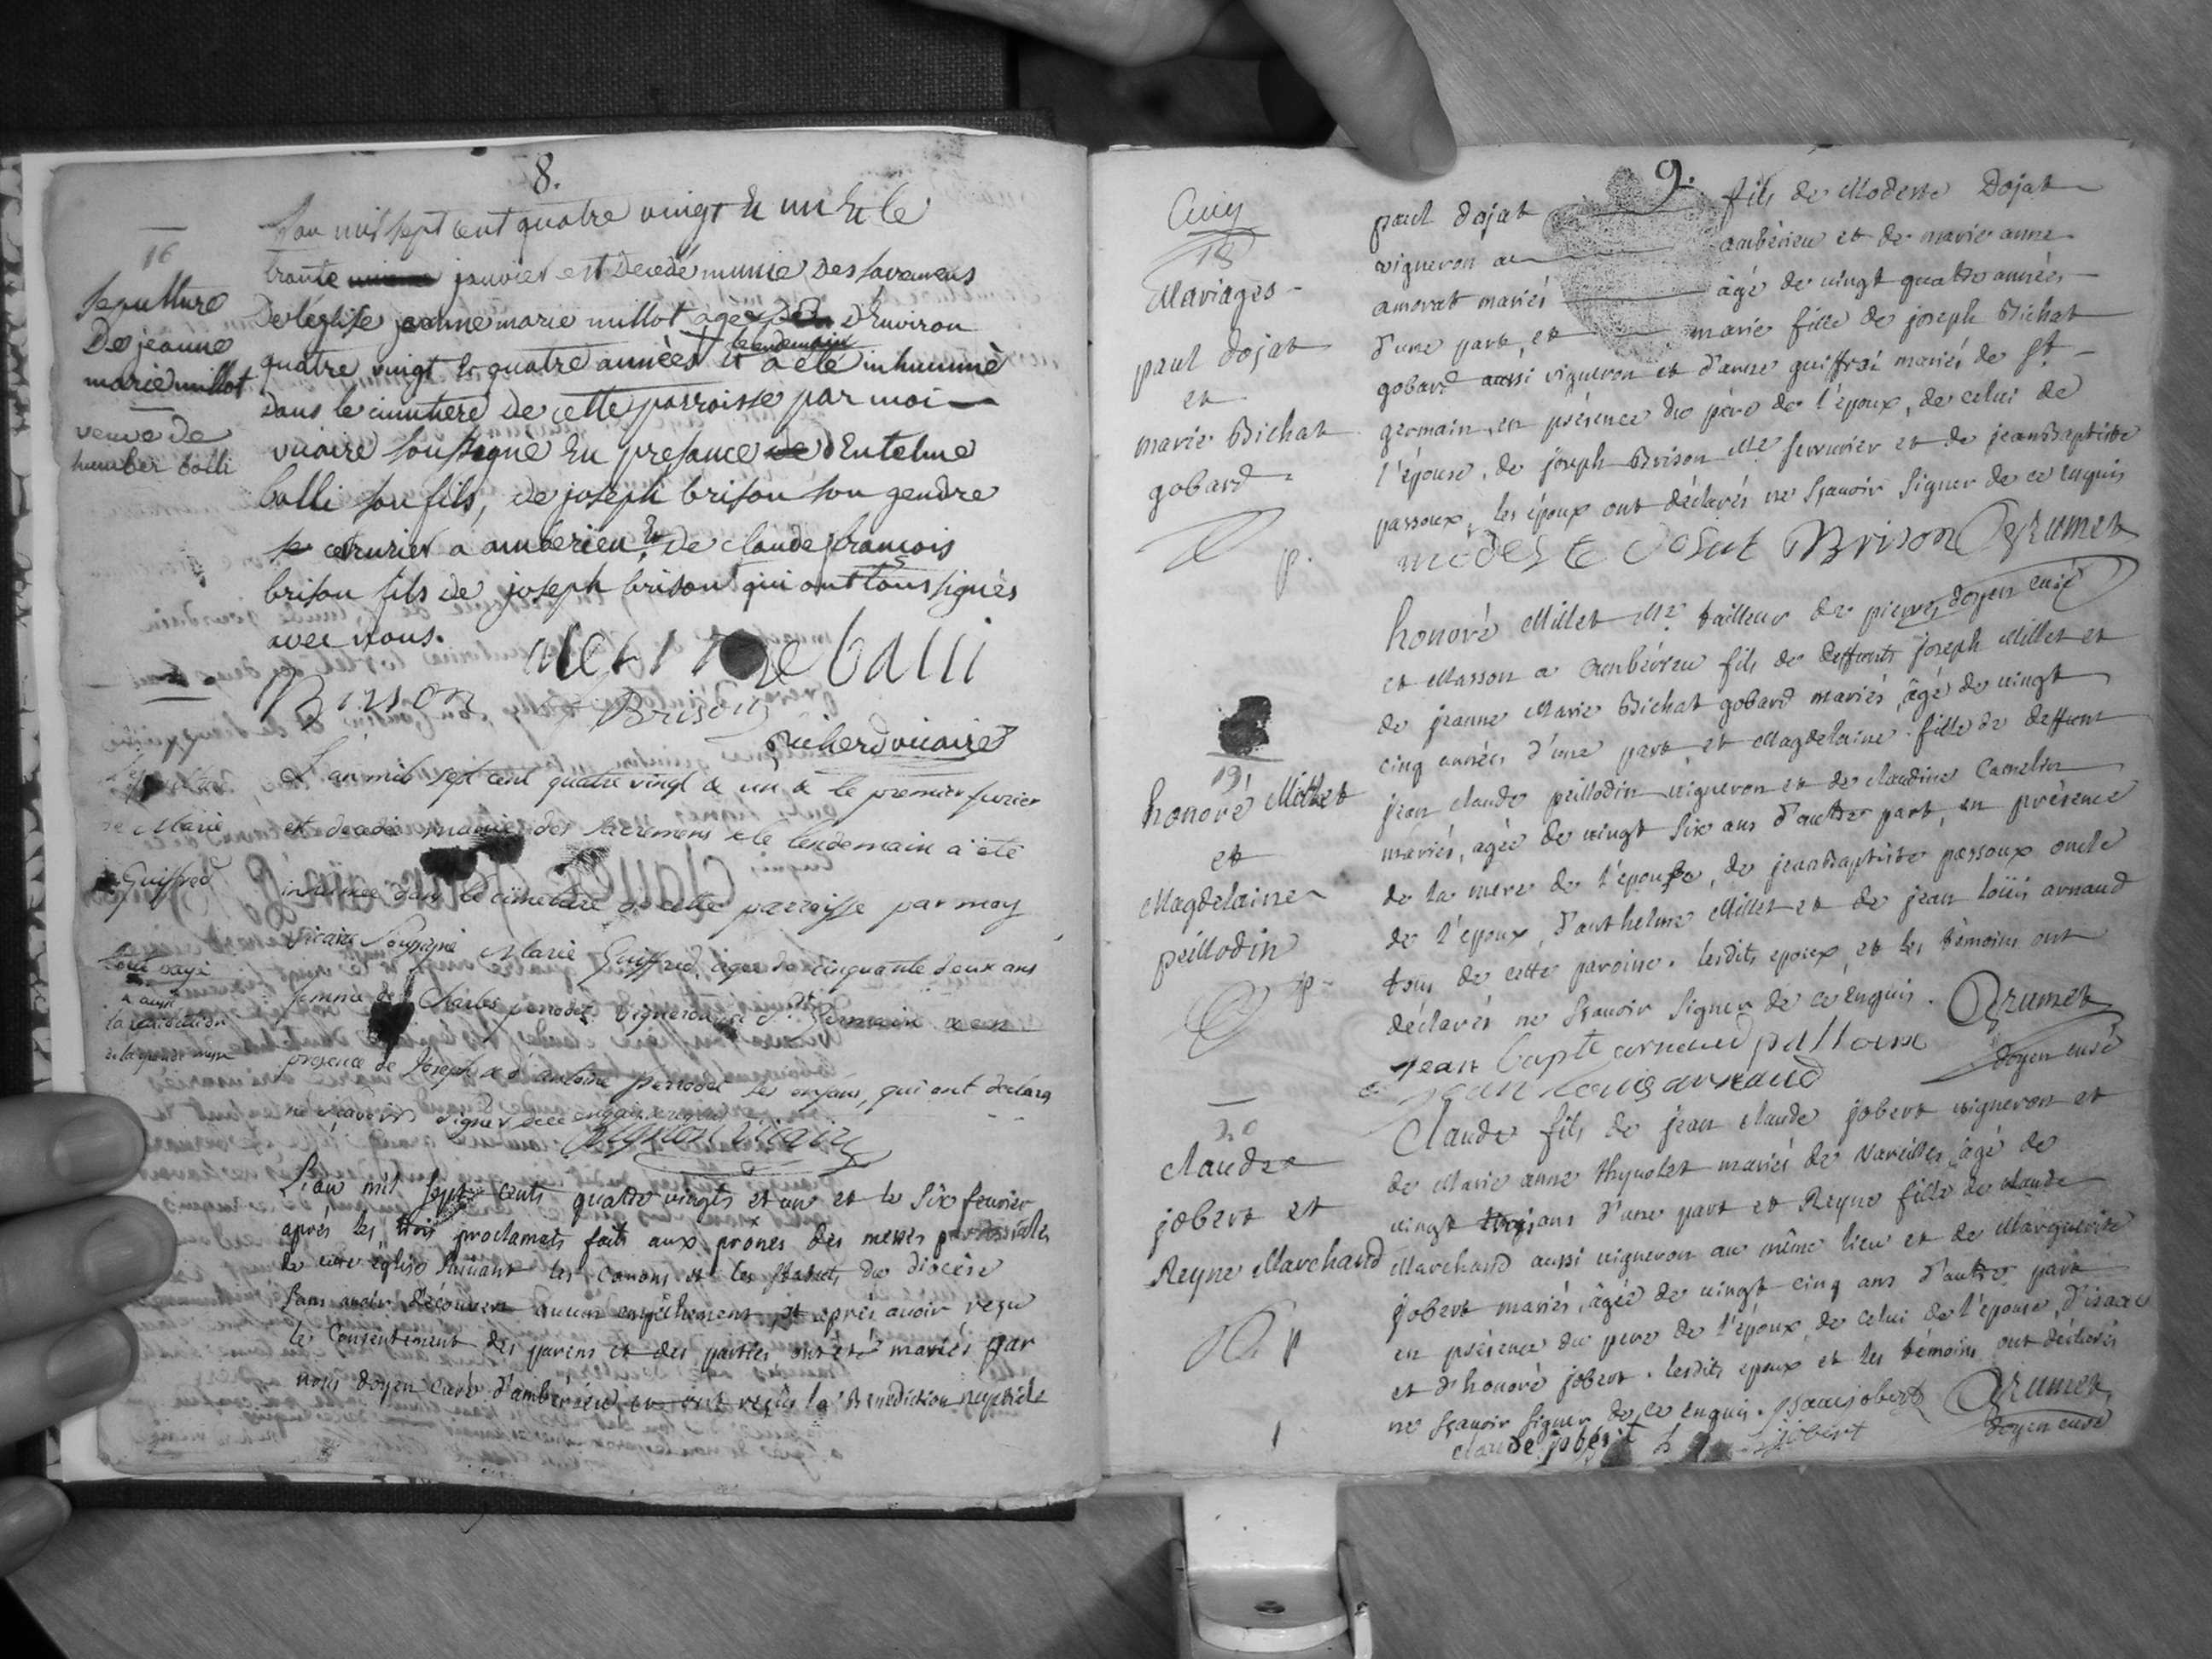 8.
16
Sepulture
De jeanne
marie millot
veuve de
humber balli
L'an mil sept cent quatre vingt et un et le
trante janvier est Decedé munie Des sacremens
De léglise jeanne marie millot agée D'Environ
quatre vingt et quatre années et le lendemain a été inhummé
dans le cimitiere de cette parroisse par moi
vicaire soussigné En presance d'Entelme
balli son fils, de joseph brison son gendre
serrurier a amberieu, et De claude françois
brison fils de joseph brison qui ont tous signés
avec nous.
balli
Brison
Brison
vicaire
de Marie
Guiffred
L'an mil sept cent quatre vingt & un & le premier fevrier
est decedée munie des sacremens & le lendemain a été
inhumee dans le cimetiere de cette parroisse par moy
vicaire soussigné Marie Guiffred, agée de cinquante deux ans
femme de Charles perrodet vigneron de St. Germain & en
presence de Joseph & d'antoine perrodet ses enfans, qui ont declaré
ne sçavoir signer de ce enquis
vicaire
L'an mil sept cents quatre vingts et un et le six fevrier
aprés les trois proclamats faits aux prones des messes paroissiales
de notre église suivant les canons et les statuts du diocèse
sans avoir découvert aucun empêchement, et aprés avoir reçu
le consentement des parens et des parties ont été mariés par
nous doyen curé d'ambérieu et ont reçu la Bénédiction nuptiale
9.
18
Mariages
paul dojat
et
marie Bichat
gobard
p.
paul dojat fils de Modeste Dojat
vigneron a ambérieu et de marie anne
amorat mariés âgé de vingt quatre années
d'une part, et marie fille de joseph Bichat
gobard aussi vigneron et d'anne guiffrai mariés de St
germain, en présence du père de l'époux, de celui de
l'épouse, de joseph Brison Me serrurier et de jean Baptiste
passoux, les époux ont déclarés ne sçavoir signer de ce enquis
modeste dojat Brison Grumet
doyen curé
19
honoré Millet
et
Magdelaine
peillodin
p
honoré Millet Me tailleur de pierres
et Masson a Ambérieu fils de deffunts joseph Millet et
de jeanne Marie Bichat gobard mariés, âgé de vingt
cinq années d'une part et Magdelaine fille de deffunt
jean claude peillodin vigneron et de claudine Camelin
mariés, agée de vingt six ans d'autre part, en présence
de la mere de l'épouse, de jean Baptiste passoux oncle
de l'époux, d'anthelme Millet et de jean loüis arnaud
tous de cette paroisse. lesdits epoux et les témoins ont
déclarés ne sçavoir signer de ce enquis. Grumet
jean bapte arnaud passoux doyen curé
jean Louis arnaud
20
claude
jobert et
Reyne Marchand
p
Claude fils de jean claude jobert vigneron et
de Marie anne thynolet mariés de Vareilles âgé de
vingt trois ans d'une part et Reyne fille de claude
Marchand aussi vigneron au même lieu et de Marguerite
jobert mariés, âgée de vingt cinq ans d'autre part
en présence du pere de l'époux, de celui de l'epouse, d'isaac
et d'honoré jobert. lesdits epoux et les témoins ont déclarés
ne sçavoir signer de ce enquis. Isaac jobert Grumet
claude jobert jobert doyen curé